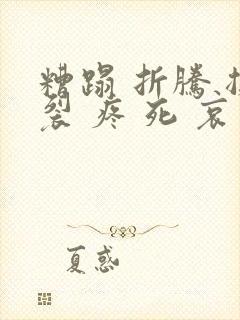 糟蹋 折騰
裂 疼 死 哀
夏惑